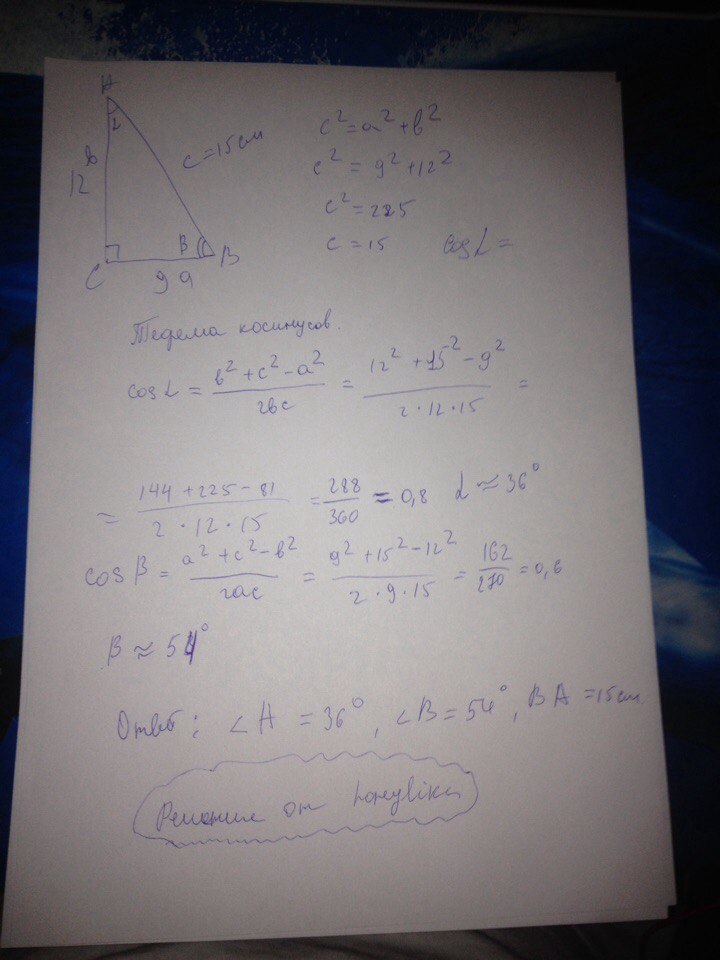 A
α
в
12
c = 15 см
C
9 a
β
B
c² = a² + в²
c² = 9² + 12²
c² = 225
c = 15 cos α =
Теорема косинусов.
cos α = (в² + c² - a²) / 2вс = (12² + 15² - 9²) / (2 · 12 · 15) =
= (144 + 225 - 81) / (2 · 12 · 15) = 288 / 360 = 0,8 α ≈ 36°
cos β = (a² + c² - в²) / 2ac = (9² + 15² - 12²) / (2 · 9 · 15) = 162 / 270 = 0,6
β ≈ 54°
Ответ: ∠A = 36°, ∠B = 54°, BA = 15 см
Решение от